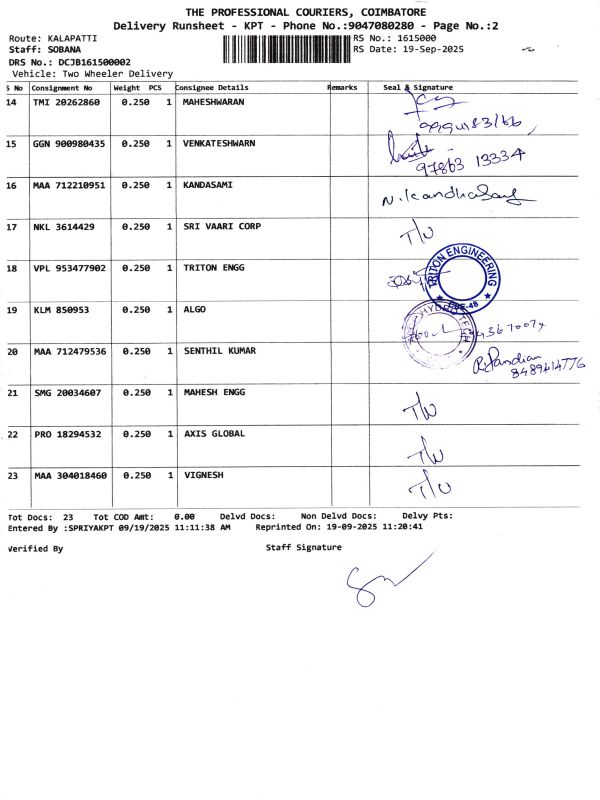 THE PROFESSIONAL COURIERS, COIMBATORE
Delivery Runsheet - KPT - Phone No.:9047080280 - Page No.:2
Route: KALAPATTI RS No.: 1615000
Staff: SOBANA RS Date: 19-Sep-2025
DRS No.: DCJB161500002
Vehicle: Two Wheeler Delivery
S No Consignment No Weight PCS Consignee Details Remarks Seal & Signature
14 TMI 20262860 0.250 1 MAHESHWARAN
15 GGN 900980435 0.250 1 VENKATESHWARN
97863 13334
16 MAA 712210951 0.250 1 KANDASAMI
N.Kandhasamy
17 NKL 3614429 0.250 1 SRI VAARI CORP
T/U
18 VPL 953477902 0.250 1 TRITON ENGG
TRITON ENGINEERING
CBE-48
19 KLM 850953 0.250 1 ALGO
HYDRO TECH
20 MAA 712479536 0.250 1 SENTHIL KUMAR
R.Pandian
8489414776
21 SMG 20034607 0.250 1 MAHESH ENGG
T/U
22 PRO 18294532 0.250 1 AXIS GLOBAL
T/U
23 MAA 304018460 0.250 1 VIGNESH
T/U
Tot Docs: 23 Tot COD Amt: 0.00 Delvd Docs: Non Delvd Docs: Delvy Pts:
Entered By :SPRIYAKPT 09/19/2025 11:11:38 AM Reprinted On: 19-09-2025 11:20:41
Verified By Staff Signature